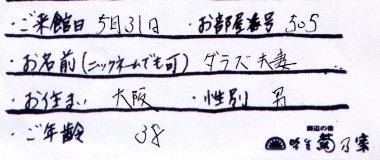 ・ご来館日 5月31日 ・お部屋番号 305
・お名前(ニックネームでも可) ダラズ夫妻
・お住まい 大阪 ・性別 男
・ご年齢 38
海辺の宿